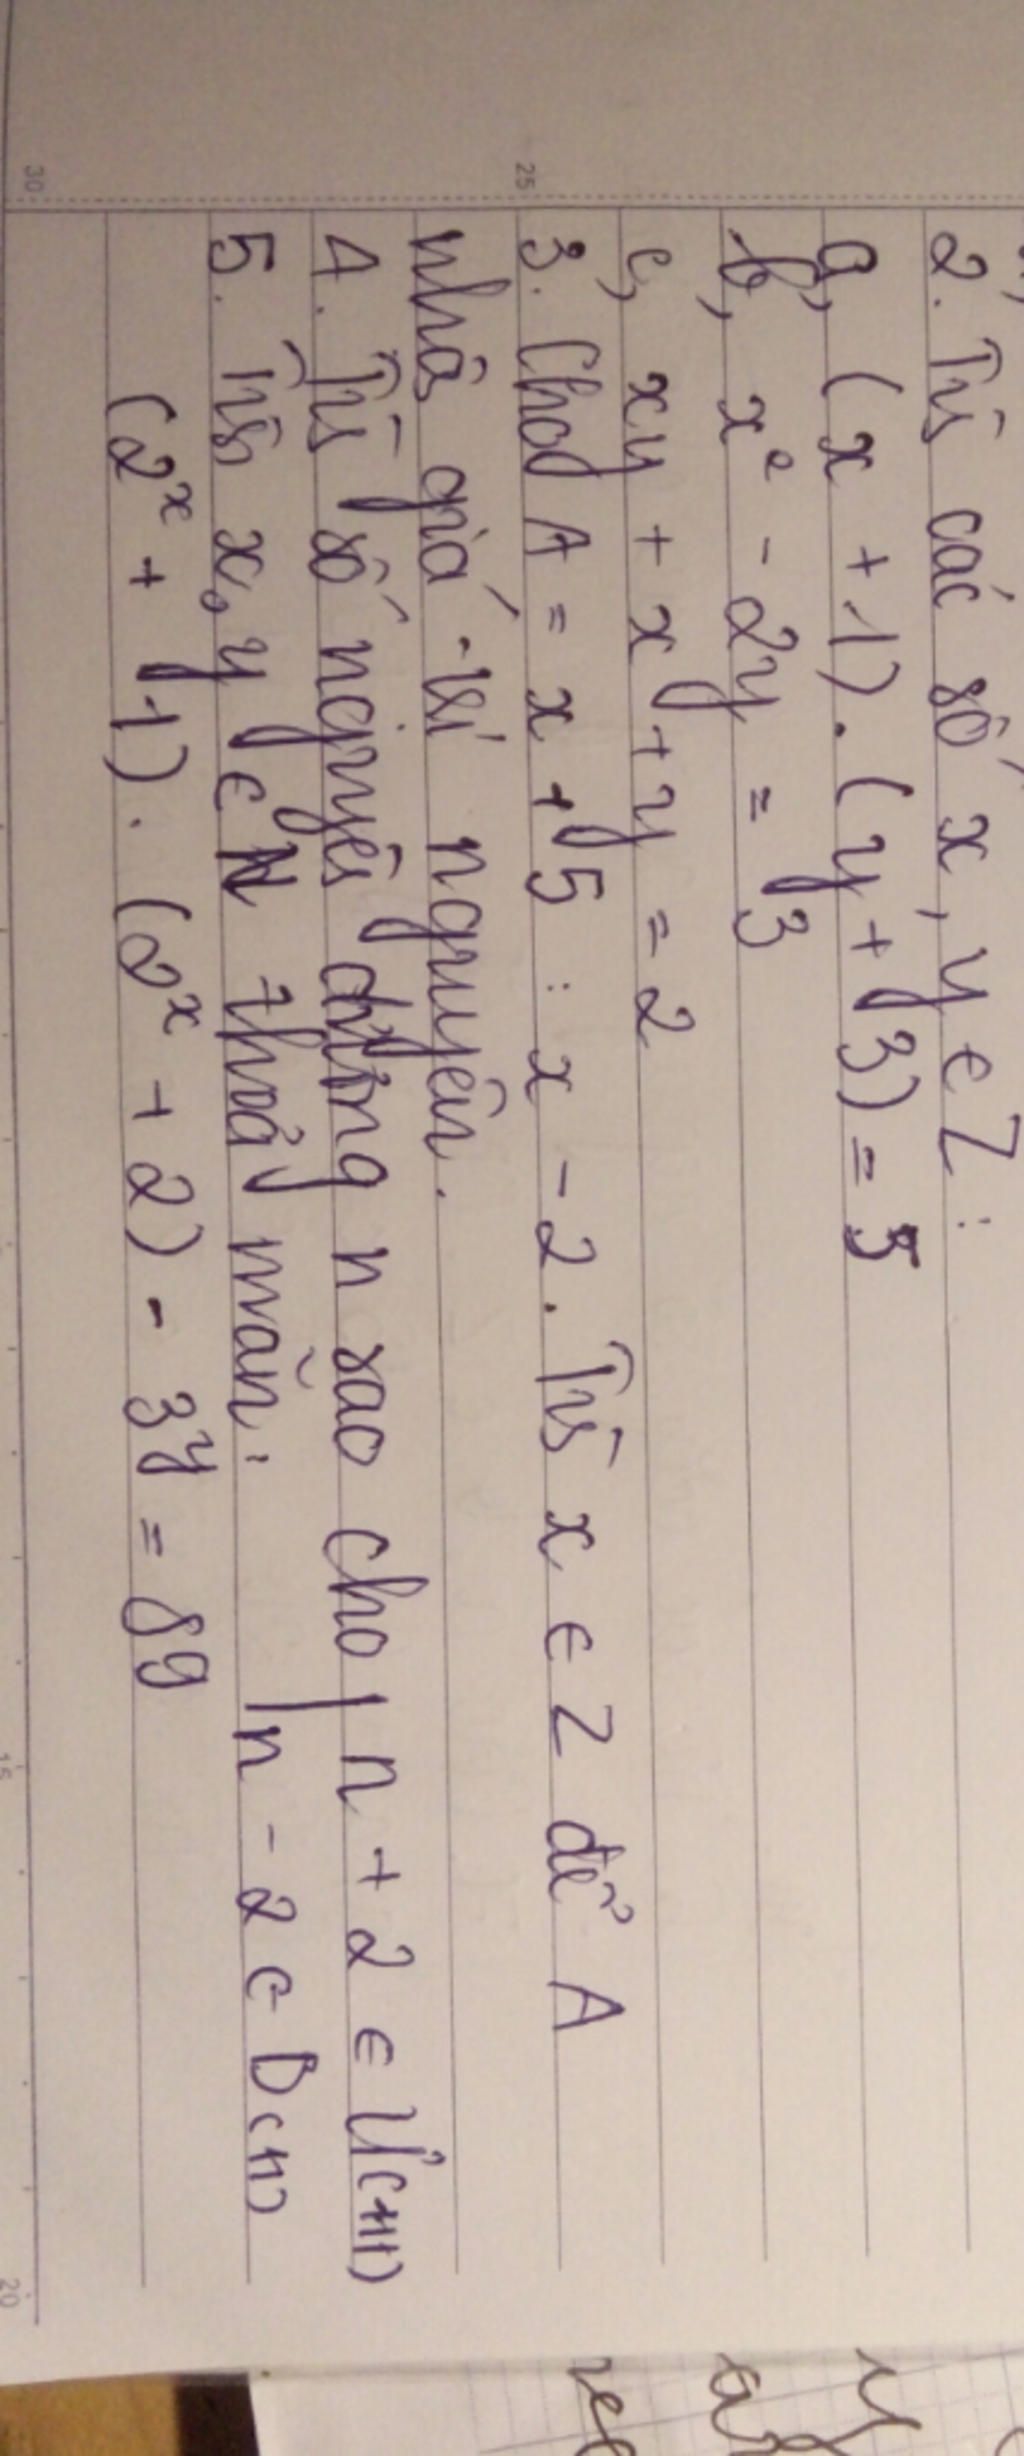 2. Tìm các số x, y ∈ Z :
a, (x + 1) . (y + 3) = 5
b, x² - 2y = 3
c, xy + x + y = 2
3. Cho A = x + 5 : x - 2. Tìm x ∈ Z để A
nhận giá trị nguyên.
4. Tìm số nguyên dương n sao cho | n + 2 ∈ Ư(111)
| n - 2 ∈ B(11)
5. Tìm x, y ∈ N thoả mãn:
(2ˣ + 1) . (2ˣ + 2) - 3ʸ = 89
30
25
15
20